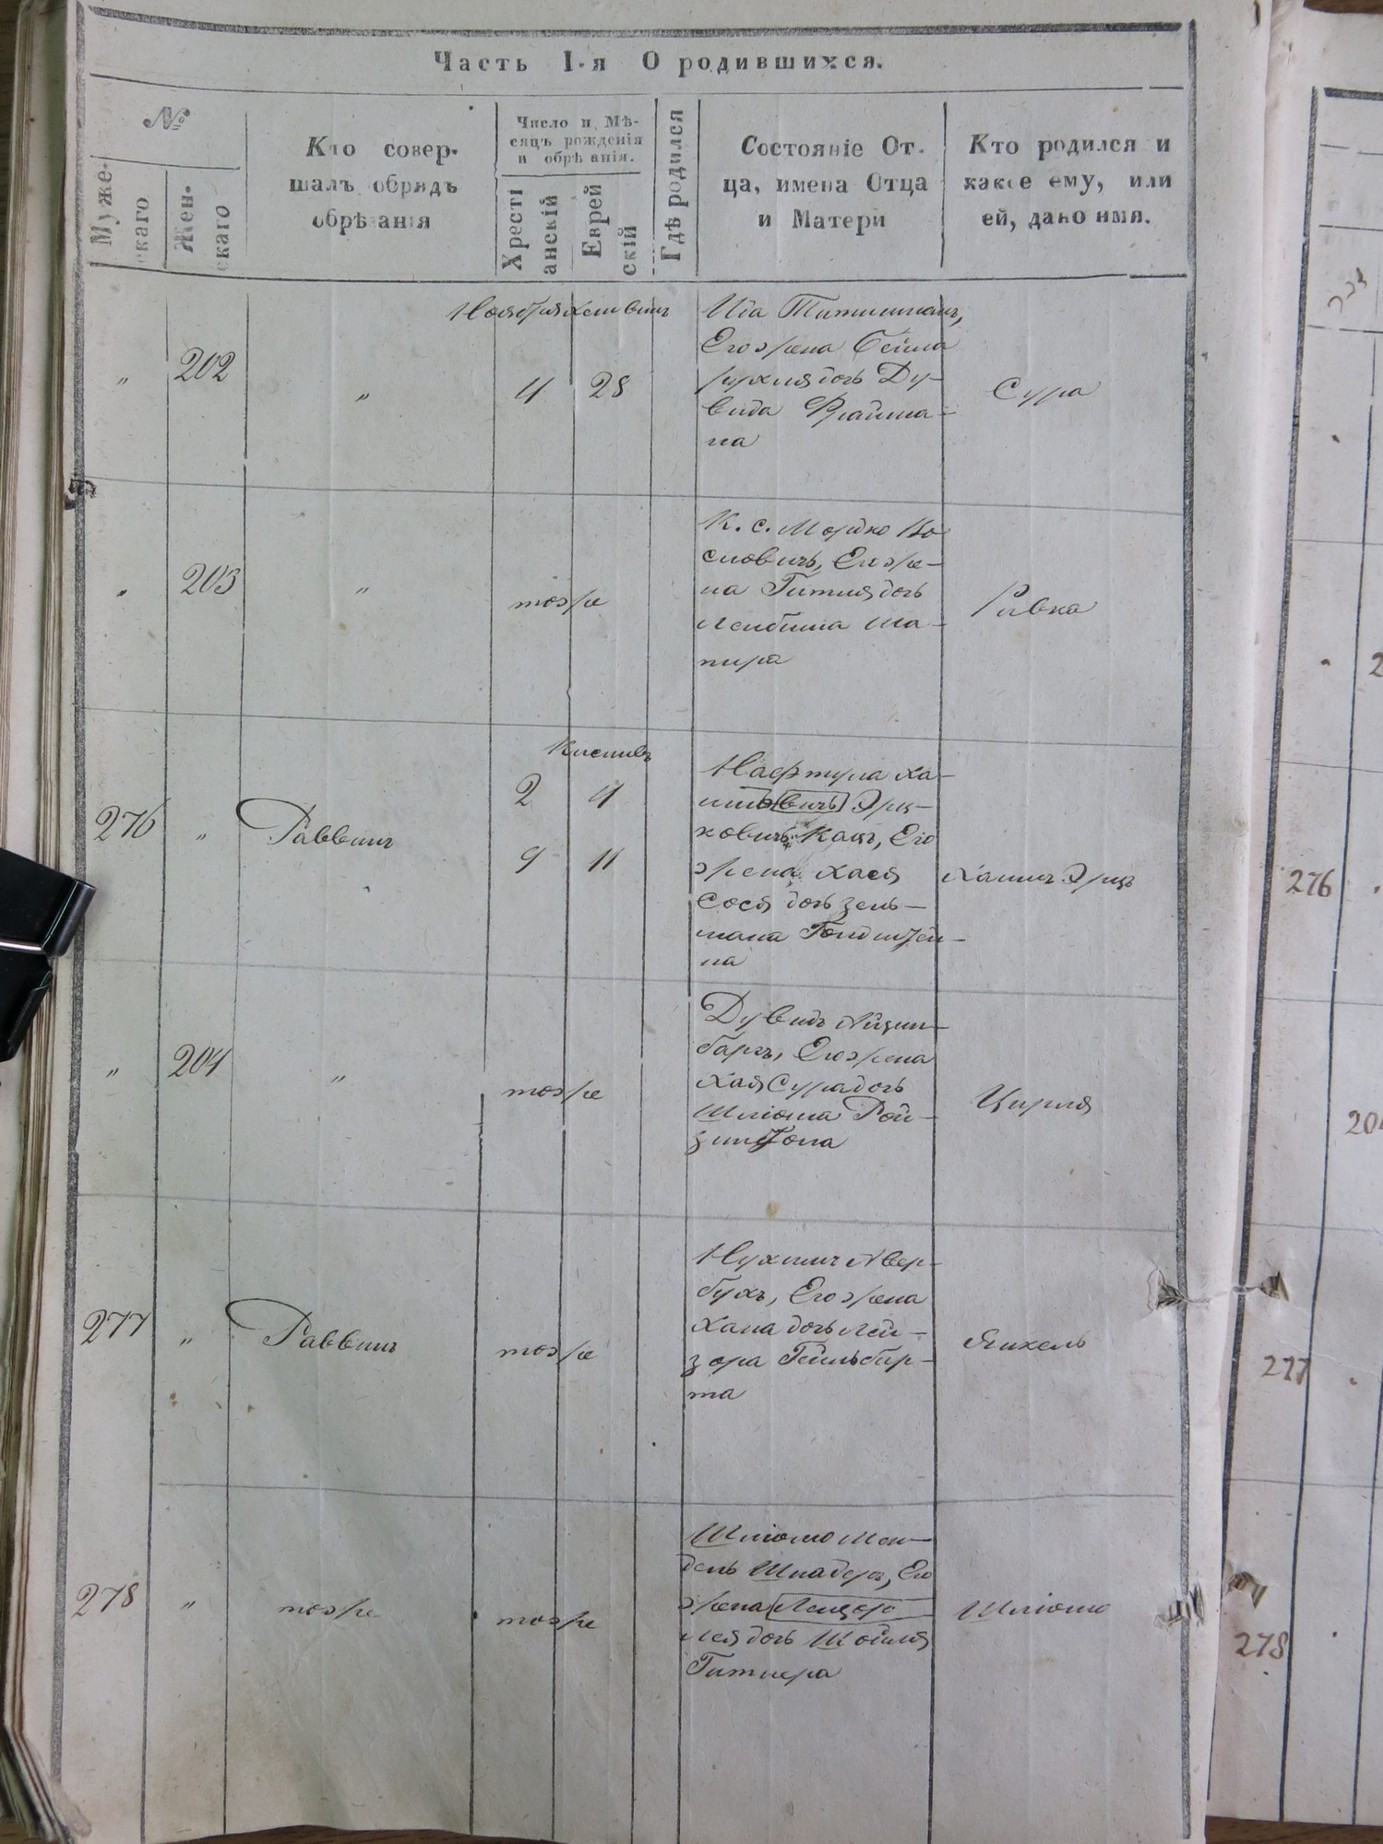 Часть I-я О родившихся.
№
Мужескаго
Женскаго
Кто совер-
шалъ обрядъ
обрѣзанія
Число и Мѣ-
сяцъ рожденія
и обрѣзанія.
Хрестіанскій
Еврейскій
Гдѣ родился
Состояніе От-
ца, имена Отца
и Матери
Кто родился и
какое ему, или
ей, дано имя.
Ноября Хешвинъ
„ 202 „ 4 28
Его жена Бейла
Рухля дочь Ду-
вида Фраима-
на
Сура
„ 203 „ тоже
К. с. Мордко Ио
словичъ, Его же-
на Гитля дочь
Лейбиша Ша-
пира
Ривка
Кисливъ
276 „ Раввинъ
2 4
9 11
Нафтула Ха-
имъ
ковичъ Кацъ, Его
жена Хася
Сося дочь Зель-
мана Гольдштей-
на
Хаимъ Эрцъ
„ 204 „ тоже
Дувидъ Айзин-
баргъ, Его жена
Хая Сура дочь
Шлiома Рой-
Цирля
277 „ Раввинъ тоже
Нухимъ Авер-
бухъ, Его жена
Хана дочь Лей-
зора Гельбар-
та
Янкель
278 „ тоже тоже
Шлiомо Мен-
дель Шнадеръ, Его
жена
Лея дочь Шойля
Гитнера
Шлiомо
276
277
278